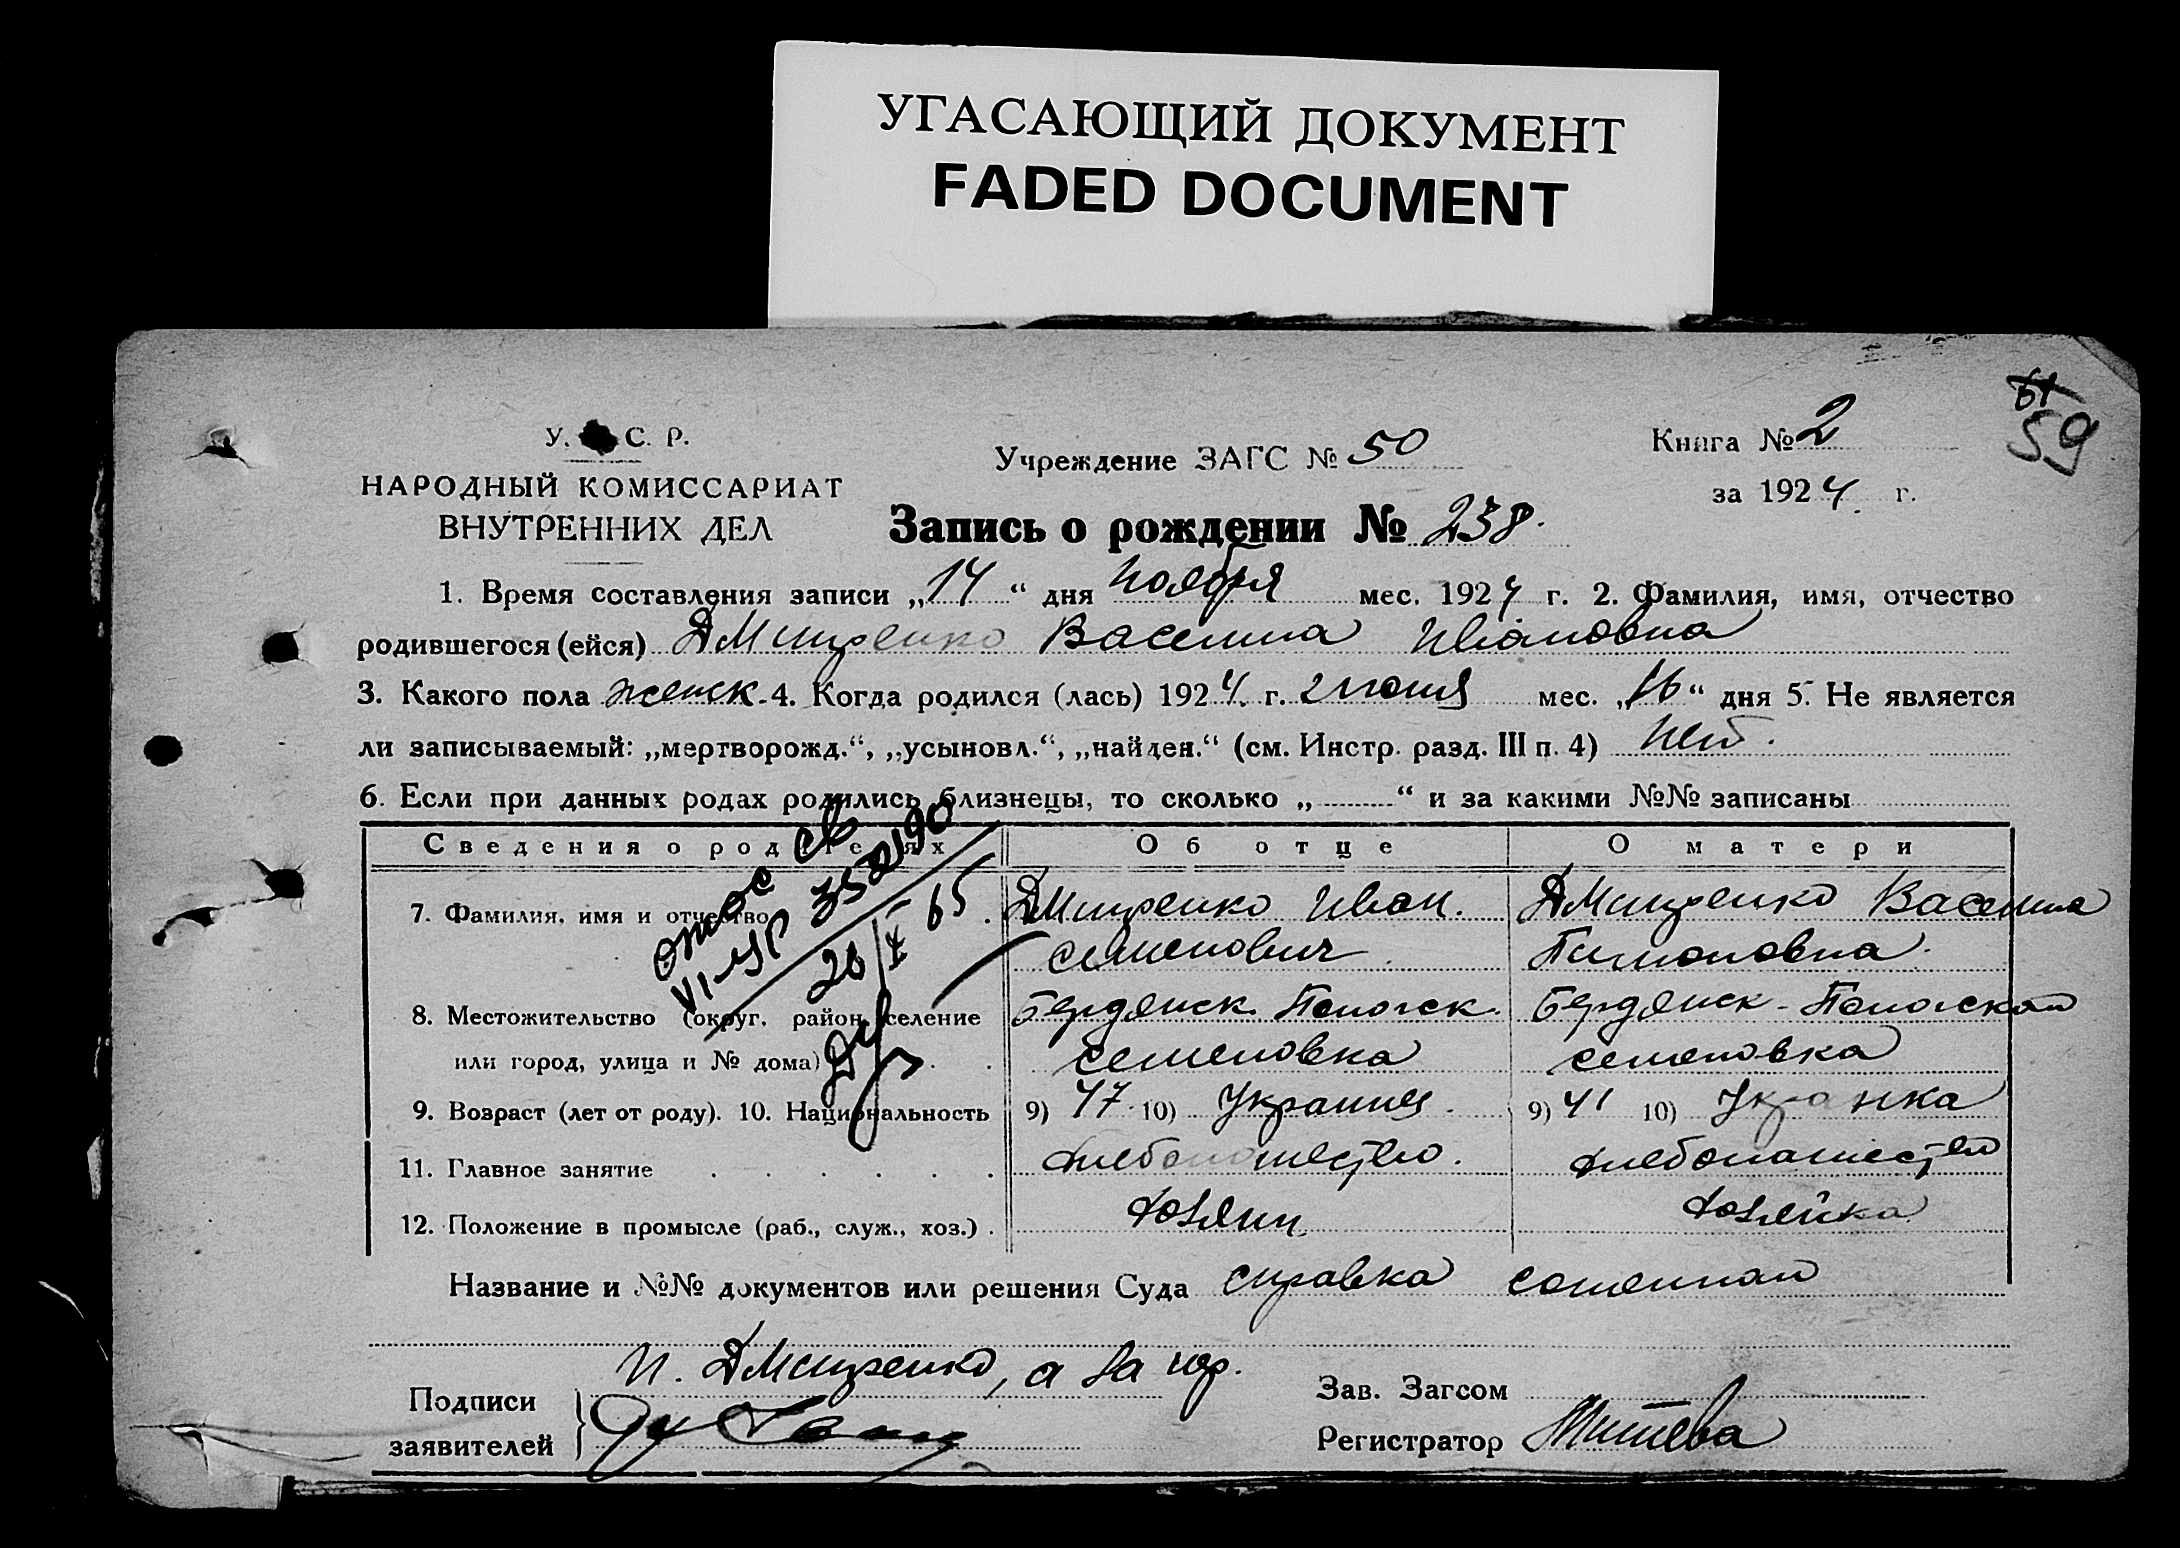 УГАСАЮЩИЙ ДОКУМЕНТ
FADED DOCUMENT
61
59
У. С. Р.
НАРОДНЫЙ КОМИССАРИАТ
ВНУТРЕННИХ ДЕЛ
Учреждение ЗАГС № 50
Книга № 2
за 1924 г.
Запись о рождении № 238.
1. Время составления записи „14“ дня ноября мес. 1924 г. 2. Фамилия, имя, отчество
родившегося (ейся) Дмитренко Васелина Ивановна
3. Какого пола женск. 4. Когда родился (лась) 1924 г. июня мес. „16“ дня 5. Не является
ли записываемый: „мертворожд.“, „усыновл.“, „найден.“ (см. Инстр. разд. III п. 4) Нет.
6. Если при данных родах родились близнецы, то сколько „ “ и за какими №№ записаны
Сведения о родителях Об отце О матери
7. Фамилия, имя и отчество Дмитренко Иван. Дмитренко Васелина
Семенович Тимоновна.
8. Местожительство (округ. район, селение Бердянск. Пологск. Бердянск - Пологской
или город, улица и № дома) Семеновка Семеновка
9. Возраст (лет от роду). 10. Национальность 9) 47. 10) Украинец. 9) 41 10) Украинка
11. Главное занятие хлебопашество. хлебопашество
12. Положение в промысле (раб., служ., хоз.) Хозяин Хозяйка
VI-УР 352190
20/X 65
Название и №№ документов или решения Суда справка
И. Дмитренко, а за нег.
Подписи
заявителей
Зав. Загсом
Регистратор